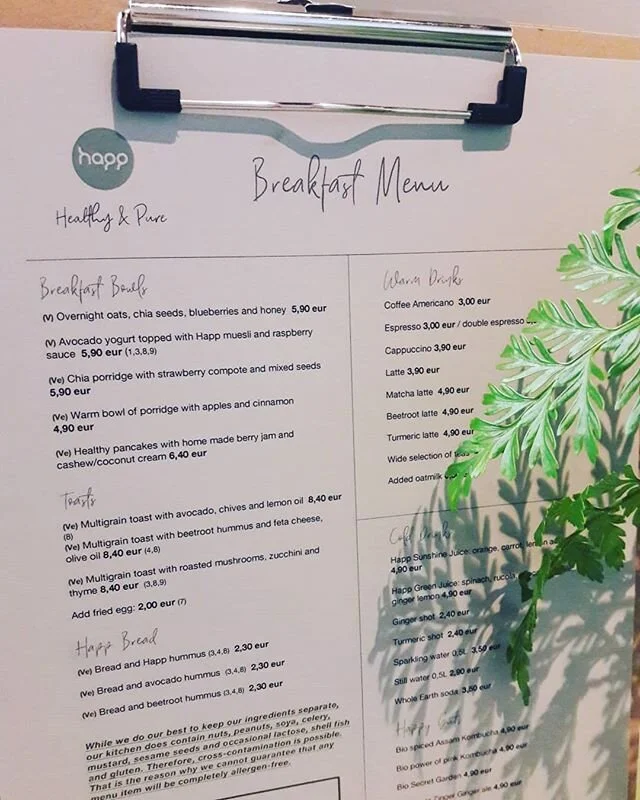 happ
Healthy & Pure
Breakfast Menu
Breakfast Bowls
(V) Overnight oats, chia seeds, blueberries and honey 5,90 eur
(V) Avocado yogurt topped with Happ muesli and raspberry
sauce 5,90 eur (1,3,8,9)
(Ve) Chia porridge with strawberry compote and mixed seeds
5,90 eur
(Ve) Warm bowl of porridge with apples and cinnamon
4,90 eur
(Ve) Healthy pancakes with home made berry jam and
cashew/coconut cream 6,40 eur
Toasts
(Ve) Multigrain toast with avocado, chives and lemon oil 8,40 eur
(8)
(Ve) Multigrain toast with beetroot hummus and feta cheese,
olive oil 8,40 eur (4,8)
(Ve) Multigrain toast with roasted mushrooms, zucchini and
thyme 8,40 eur (3,8,9)
Add fried egg: 2,00 eur (7)
Happ Bread
(Ve) Bread and Happ hummus (3,4,8) 2,30 eur
(Ve) Bread and avocado hummus (3,4,8) 2,30 eur
(Ve) Bread and beetroot hummus (3,4,8) 2,30 eur
While we do our best to keep our ingredients separate,
our kitchen does contain nuts, peanuts, soya, celery,
mustard, sesame seeds and occasional lactose, shell fish
and gluten. Therefore, cross-contamination is possible.
That is the reason why we cannot guarantee that any
menu item will be completely allergen-free.
Warm Drinks
Coffee Americano 3,00 eur
Espresso 3,00 eur / double espresso
Cappuccino 3,90 eur
Latte 3,90 eur
Matcha latte 4,90 eur
Beetroot latte 4,90 eur
Turmeric latte 4,90
Wide selection of
Added oatmilk
Cold Drinks
Happ Sunshine Juice: orange, carrot, lemon
4,90 eur
Happ Green Juice: spinach, rucola,
ginger lemon 4,90 eur
Ginger shot 2,40 eur
Turmeric shot 2,40 eur
Sparkling water 0,5L 3,50 eur
Still water 0,5L 2,90 eur
Whole Earth soda 3,50 eur
Happy
Bio spiced Assam Kombucha 4,90 eur
Bio power of pink Kombucha 4,90 eur
Bio Secret Garden 4,90 eur
Ginger Ginger ale 4,90 eur